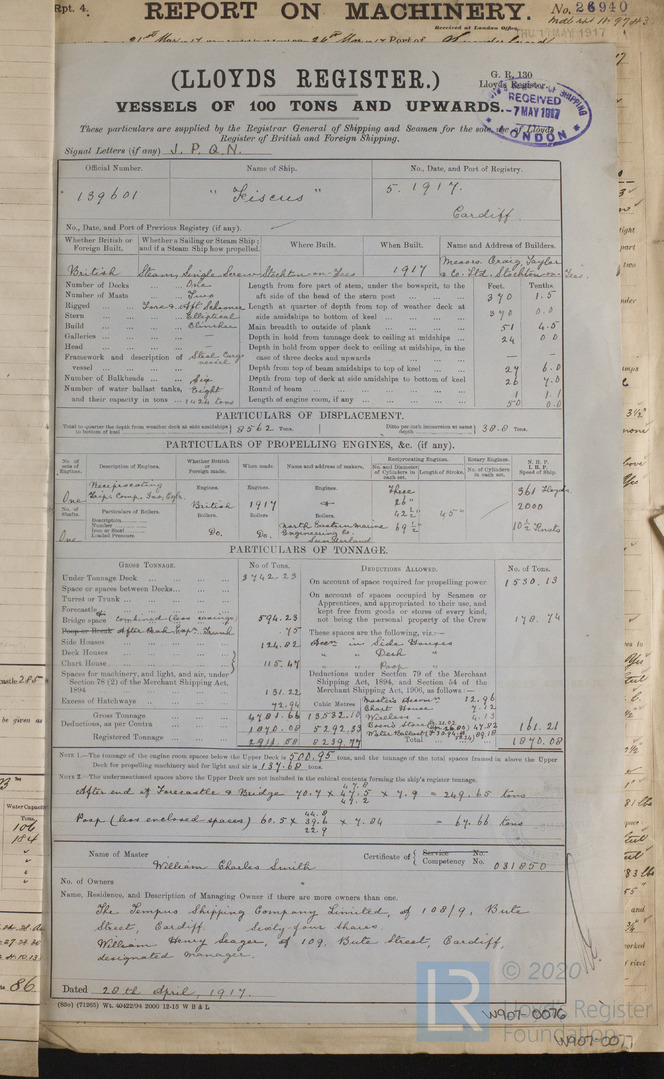 Rpt. 4.
REPORT ON MACHINERY.
No. 26940
Received at London Office
THU. 17 MAY 1917
Port of
(LLOYDS REGISTER.)
G. R. 130
Lloyds Register
VESSELS OF 100 TONS AND UPWARDS.
RECEIVED
-7 MAY 1917
LONDON
These particulars are supplied by the Registrar General of Shipping and Seamen for the sole use of Lloyds
Register of British and Foreign Shipping.
Signal Letters (if any) J. P. Q. N.
Official Number. Name of Ship. No., Date, and Port of Registry.
139601 " Fiscus " 5. 1917.
Cardiff.
No., Date, and Port of Previous Registry (if any).
Whether British or Foreign Built. Whether a Sailing or Steam Ship; and if a Steam Ship how propelled. Where Built. When Built. Name and Address of Builders.
British Steam, Single Screw Stockton-on-Tees 1917 Messrs. Craig, Taylor
& Co. Ltd. Stockton-on-Tees.
Number of Decks One Length from fore part of stem, under the bowsprit, to the Feet. Tenths.
Number of Masts Two aft side of the head of the stern post 370 1.5
Rigged Fore & Aft Schooner Length at quarter of depth from top of weather deck at
Stern Elliptical side amidships to bottom of keel 370 0.0
Build Clincher Main breadth to outside of plank 51 4.5
Galleries — Depth in hold from tonnage deck to ceiling at midships 24 0.0
Head — Depth in hold from upper deck to ceiling at midships, in the
Framework and description of vessel Steel Cargo vessel case of three decks and upwards — —
Depth from top of beam amidships to top of keel 27 6.0
Number of Bulkheads Six Depth from top of deck at side amidships to bottom of keel 26 7.0
Number of water ballast tanks, Eight Round of beam 1 1.1
and their capacity in tons 1424 tons Length of engine room, if any 50 0.0
PARTICULARS OF DISPLACEMENT.
Total to quarter the depth from weather deck at side amidships to bottom of keel 8562 Tons. Ditto per inch immersion at same depth 38.8 Tons.
PARTICULARS OF PROPELLING ENGINES, &c. (if any).
No. of sets of Engines. Description of Engines. Whether British or Foreign made. When made. Name and address of makers. Reciprocating Engines. Rotary Engines. N. H. P. I. H. P. Speed of Ship.
No. and Diameter of Cylinders in each set. Length of Stroke. No. of Cylinders in each set.
One Reciprocating Engines. Engines. Engines. Three 361 Lloyds
British 1917 26" 2000
No. of Shafts. Particulars of Boilers. Boilers. Boilers. Boilers. 42½" 45" 10½ Knots
Description
Number
Iron or Steel
Loaded Pressure.
One Do. Do. North Eastern Marine Engineering Co. Sunderland 69½"
PARTICULARS OF TONNAGE.
GROSS TONNAGE. No. of Tons. DEDUCTIONS ALLOWED. No. of Tons.
Under Tonnage Deck 3742.23 On account of space required for propelling power 1530.13
Space or spaces between Decks On account of spaces occupied by Seamen or
Turret or Trunk Apprentices, and appropriated to their use, and
Forecastle & kept free from goods or stores of every kind,
Bridge space combined (less casing) 594.23 not being the personal property of the Crew 178.74
Poop or Break After Peak Expn. Trunk .75 These spaces are the following, viz.:—
Side Houses 124.82 Accn. in Side Houses
Deck Houses " " Deck
Chart House 115.47 " " Poop
Spaces for machinery, and light, and air, under Deductions under Section 79 of the Merchant
Section 78 (2) of the Merchant Shipping Act, Shipping Act, 1894, and Section 54 of the
1894 131.22 Merchant Shipping Act, 1906, as follows:—
Excess of Hatchways 72.94 Cubic Metres Master's Accn. 12.96
Chart House 7.12
Gross Tonnage 4781.66 13532.10 Wireless 4.13
Deductions, as per Contra 1870.08 5292.33 Bosn's Stores 47.82 161.21
Registered Tonnage 2911.58 8239.77 Water Ballast 89.18 Total 1870.08
NOTE 1.—The tonnage of the engine room spaces below the Upper Deck is 500.95 tons, and the tonnage of the total spaces framed in above the Upper
Deck for propelling machinery and for light and air is 137.68 tons.
NOTE 2.—The undermentioned spaces above the Upper Deck are not included in the cubical contents forming the ship's register tonnage.
After end of Forecastle & Bridge 70.7 x 47.5 x 7.9 = 249.65 tons
47.2
Poop (less enclosed spaces) 60.5 x 44.8 39.6 22.9 x 7.84 = 67.66 tons
Name of Master William Charles Smith Certificate of { Service No. Competency No. 031850
No. of Owners
Name, Residence, and Description of Managing Owner if there are more owners than one.
The Tempus Shipping Company Limited, of 108/9, Bute
Street, Cardiff. Sixty-four shares.
William Henry Seager, of 109, Bute Street, Cardiff,
designated manager.
Dated 28th April, 1917.
(85o) (71265) Wt. 40422/94 2000 12-15 W B & L
© 2020
LR Lloyd's Register
Foundation
W907-0076
W907-0077
Water Capacity
Tons.
106
184
86
be given as